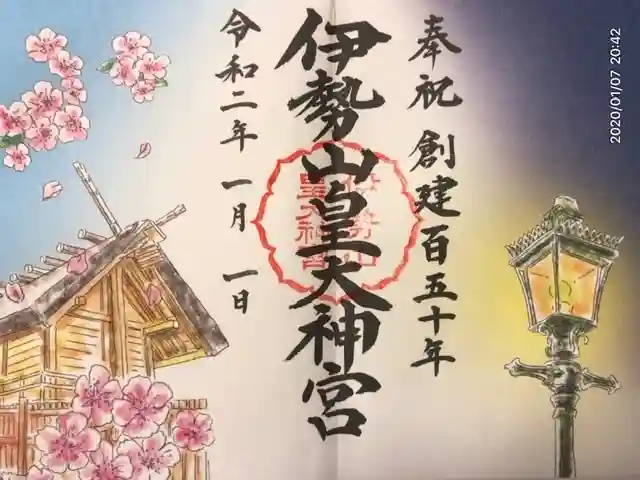 奉祝 創建百五十年
伊勢山皇大神宮
令和二年 一月 一日
伊勢山
皇大神宮
2020/01/07 20:42